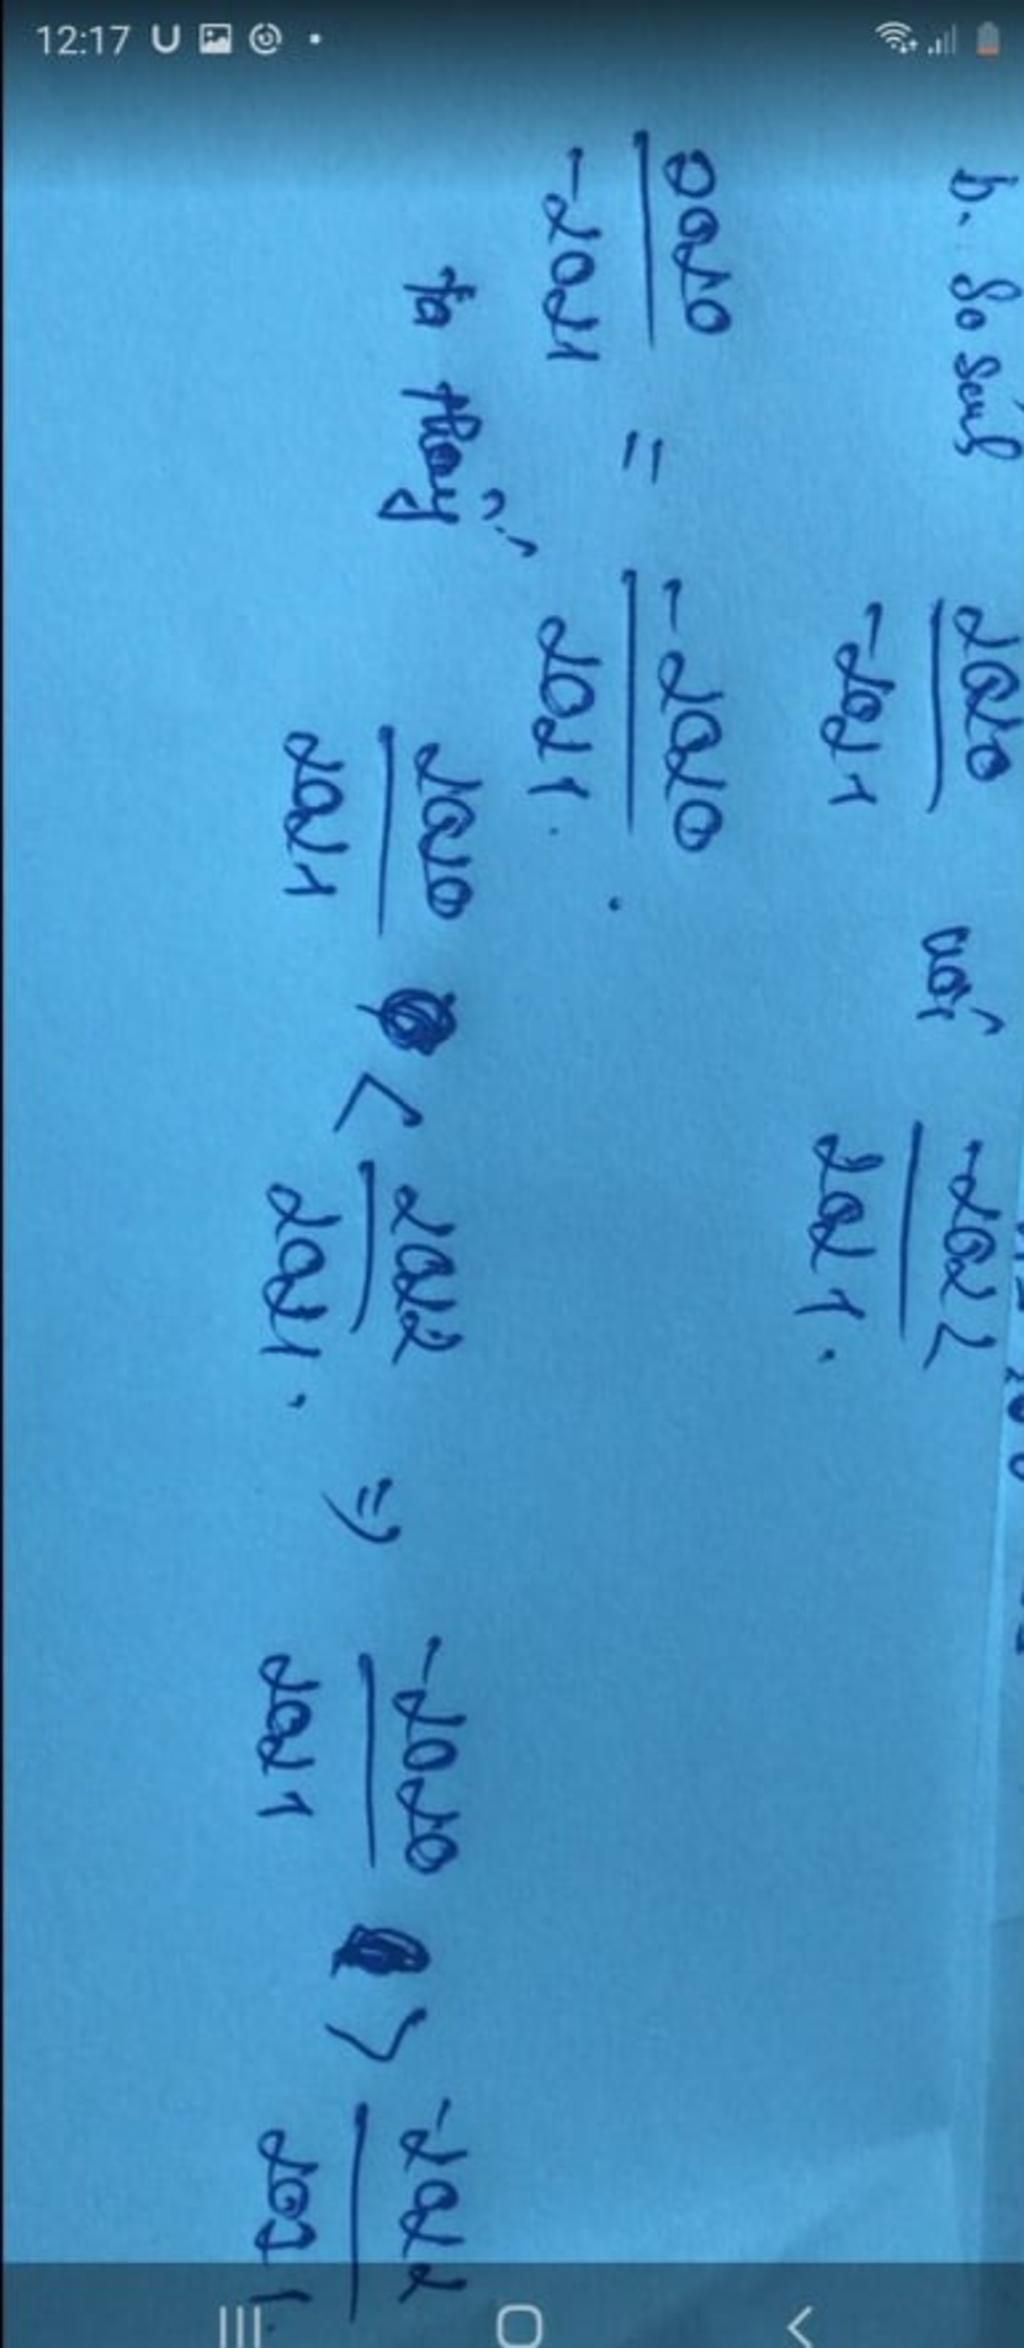 12:17
b. So sánh 2020/-2021 với -2022/2021.
2020/-2021 = -2020/2021.
ta thấy 2020/2021 < 2022/2021. => -2020/2021 > -2022/2021.